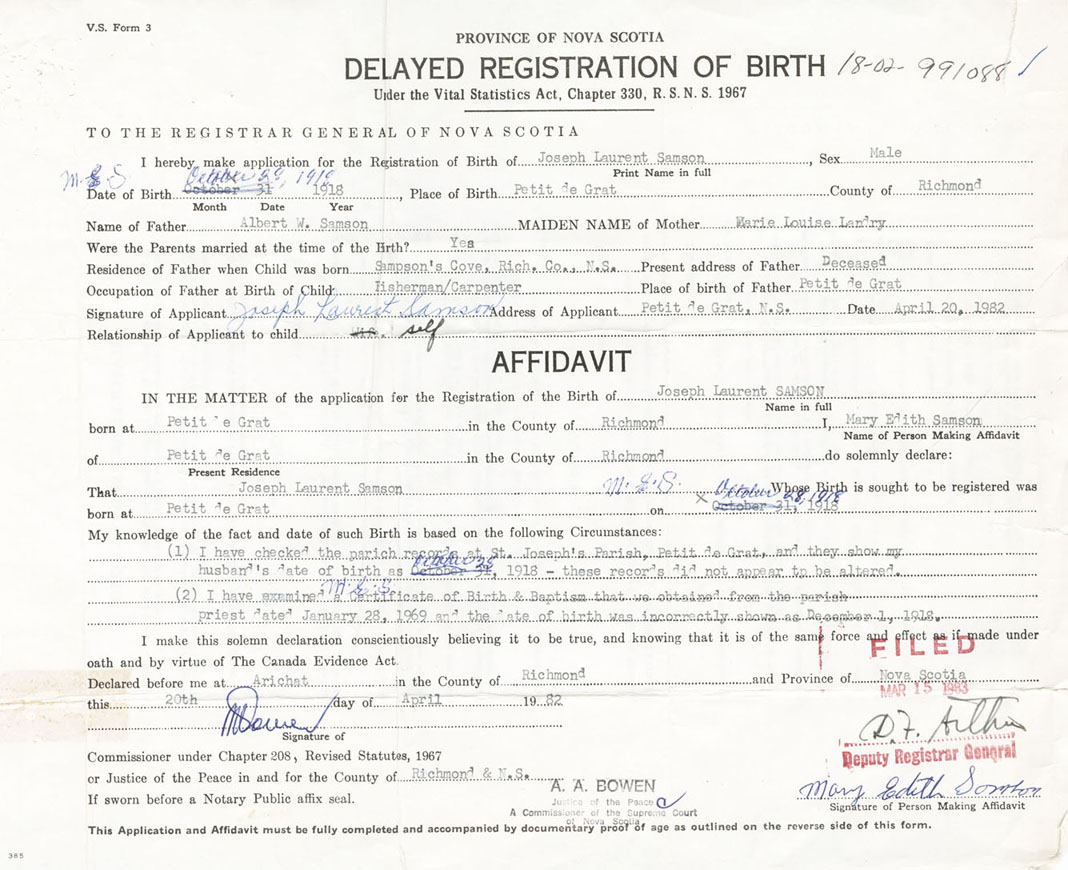 V.S. Form 3
PROVINCE OF NOVA SCOTIA
DELAYED REGISTRATION OF BIRTH 18-02-991088
Under the Vital Statistics Act, Chapter 330, R.S.N.S. 1967
TO THE REGISTRAR GENERAL OF NOVA SCOTIA
I hereby make application for the Registration of Birth of Joseph Laurent Samson, Sex Male
Print Name in full
M.E.S. October 28, 1918
Date of Birth October 31 1918, Place of Birth Petit de Grat County of Richmond
Month Date Year
Name of Father Albert W. Samson MAIDEN NAME of Mother Marie Louise Landry
Were the Parents married at the time of the Birth? Yes
Residence of Father when Child was born Sampson's Cove, Rich. Co., N.S. Present address of Father Deceased
Occupation of Father at Birth of Child Fisherman/Carpenter Place of birth of Father Petit de Grat
Signature of Applicant Joseph Laurest Samson Address of Applicant Petit de Grat, N.S. Date April 20, 1982
Relationship of Applicant to child self
AFFIDAVIT
IN THE MATTER of the application for the Registration of the Birth of Joseph Laurent SAMSON
Name in full
born at Petit de Grat in the County of Richmond I, Mary Edith Samson
Name of Person Making Affidavit
of Petit de Grat in the County of Richmond do solemnly declare:
Present Residence
That Joseph Laurent Samson M.E.S. October 28, 1918 Whose Birth is sought to be registered was
born at Petit de Grat on x October 31, 1918
My knowledge of the fact and date of such Birth is based on the following Circumstances:
(1) I have checked the parich records at St. Joseph's Parish, Petit de Grat, and they show my
October 28
husband's date of birth as October 31, 1918 - these records did not appear to be altered.
M.E.S.
(2) I have examined a Certificate of Birth & Baptism that we obtained from the parish
priest dated January 28, 1969 and the date of birth was incorrectly shown as December 1, 1918.
I make this solemn declaration conscientiously believing it to be true, and knowing that it is of the same force and effect as if made under
oath and by virtue of The Canada Evidence Act.
FILED
Declared before me at Arichat in the County of Richmond and Province of Nova Scotia
MAR 15 1983
this 20th day of April 1982
Signature of
Deputy Registrar General
Commissioner under Chapter 208, Revised Statutes, 1967
or Justice of the Peace in and for the County of Richmond & N.S.
If sworn before a Notary Public affix seal.
A. A. BOWEN
Justice of the Peace
A Commissioner of the Supreme Court
of Nova Scotia
Mary Edith Samson
Signature of Person Making Affidavit
This Application and Affidavit must be fully completed and accompanied by documentary proof of age as outlined on the reverse side of this form.
385